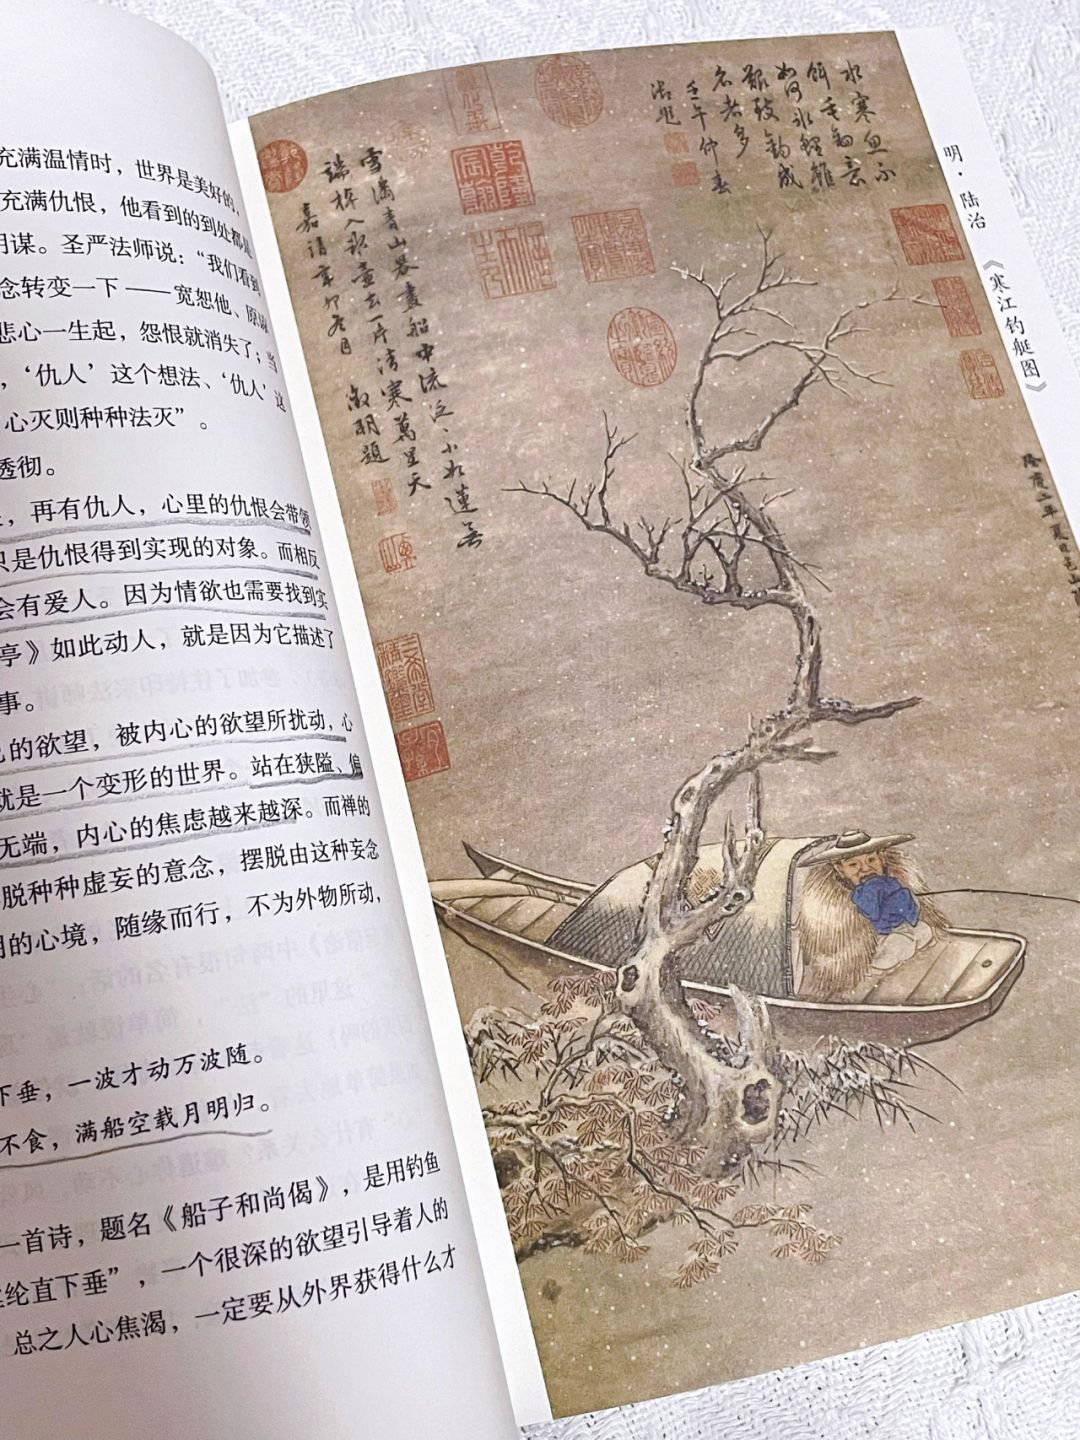 充满温情时，世界是美好的，
充满仇恨，他看到的到处都是
阴谋。圣严法师说：“我们看到
念转变一下——宽恕他、原谅
悲心一生起，怨恨就消失了；当
，‘仇人’这个想法、‘仇人’这
心灭则种种法灭”。
透彻。
，再有仇人，心里的仇恨会带领
只是仇恨得到实现的对象。而相反
会有爱人。因为情欲也需要找到实
亭》如此动人，就是因为它描述了
事。
的欲望，被内心的欲望所扰动，心
就是一个变形的世界。站在狭隘、偏
无端，内心的焦虑越来越深。而禅的
脱种种虚妄的意念，摆脱由这种妄念
明的心境，随缘而行，不为外物所动，
下垂，一波才动万波随。
不食，满船空载月明归。
一首诗，题名《船子和尚偈》，是用钓鱼
纶直下垂”，一个很深的欲望引导着人的
总之人心焦渴，一定要从外界获得什么才
明·陆治
《寒江钓艇图》
水寒魚不
餌毛句言
如何冰鯉雖
艱致鈞成
名者多
壬午仲春
御題
雪滿青山暮畫船中流泛泛小如蓮無
端棹入冰壺去一片清寒萬里天
嘉靖辛卯冬日
徵明題
隆慶二年夏日包山陸
乾隆